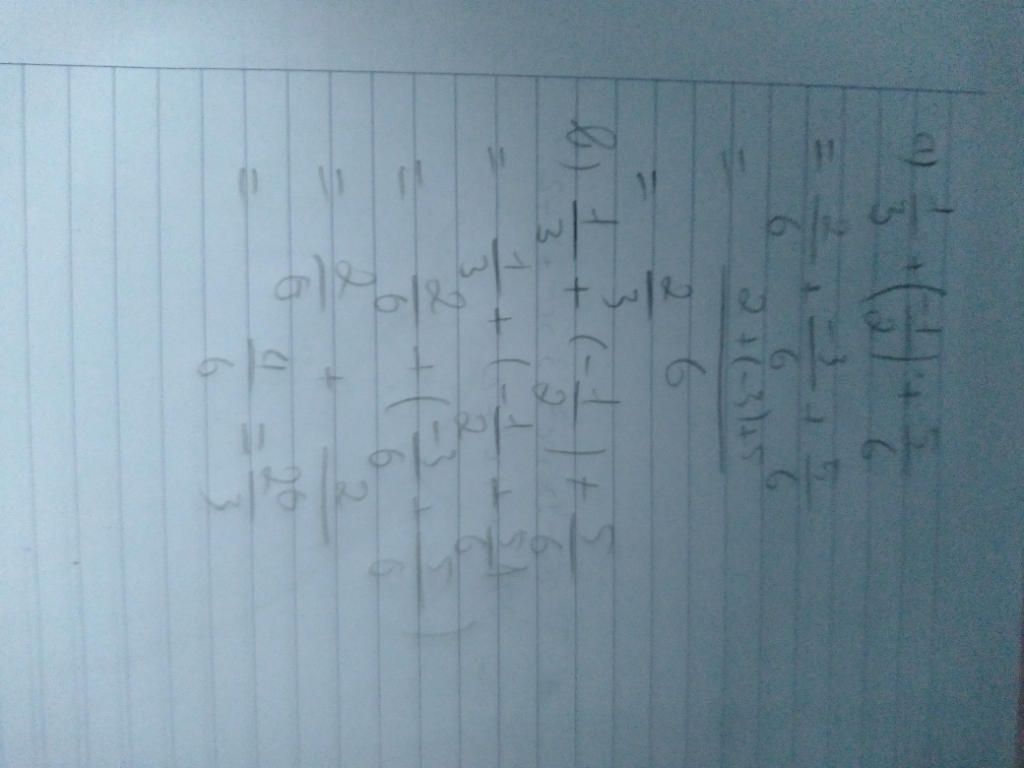 a) 1/3 + (-1/2) + 5/6
= 2/6 + -3/6 + 5/6
= 2+(-3)+5 / 6
= 2/3
b) 1/3 + (-1/2) + 5/6
= 1/3 + (-1/2 + 5/6)
= 2/6 + (-3/6 + 5/6)
= 2/6 + 2/6
= 4/6 = 2/3